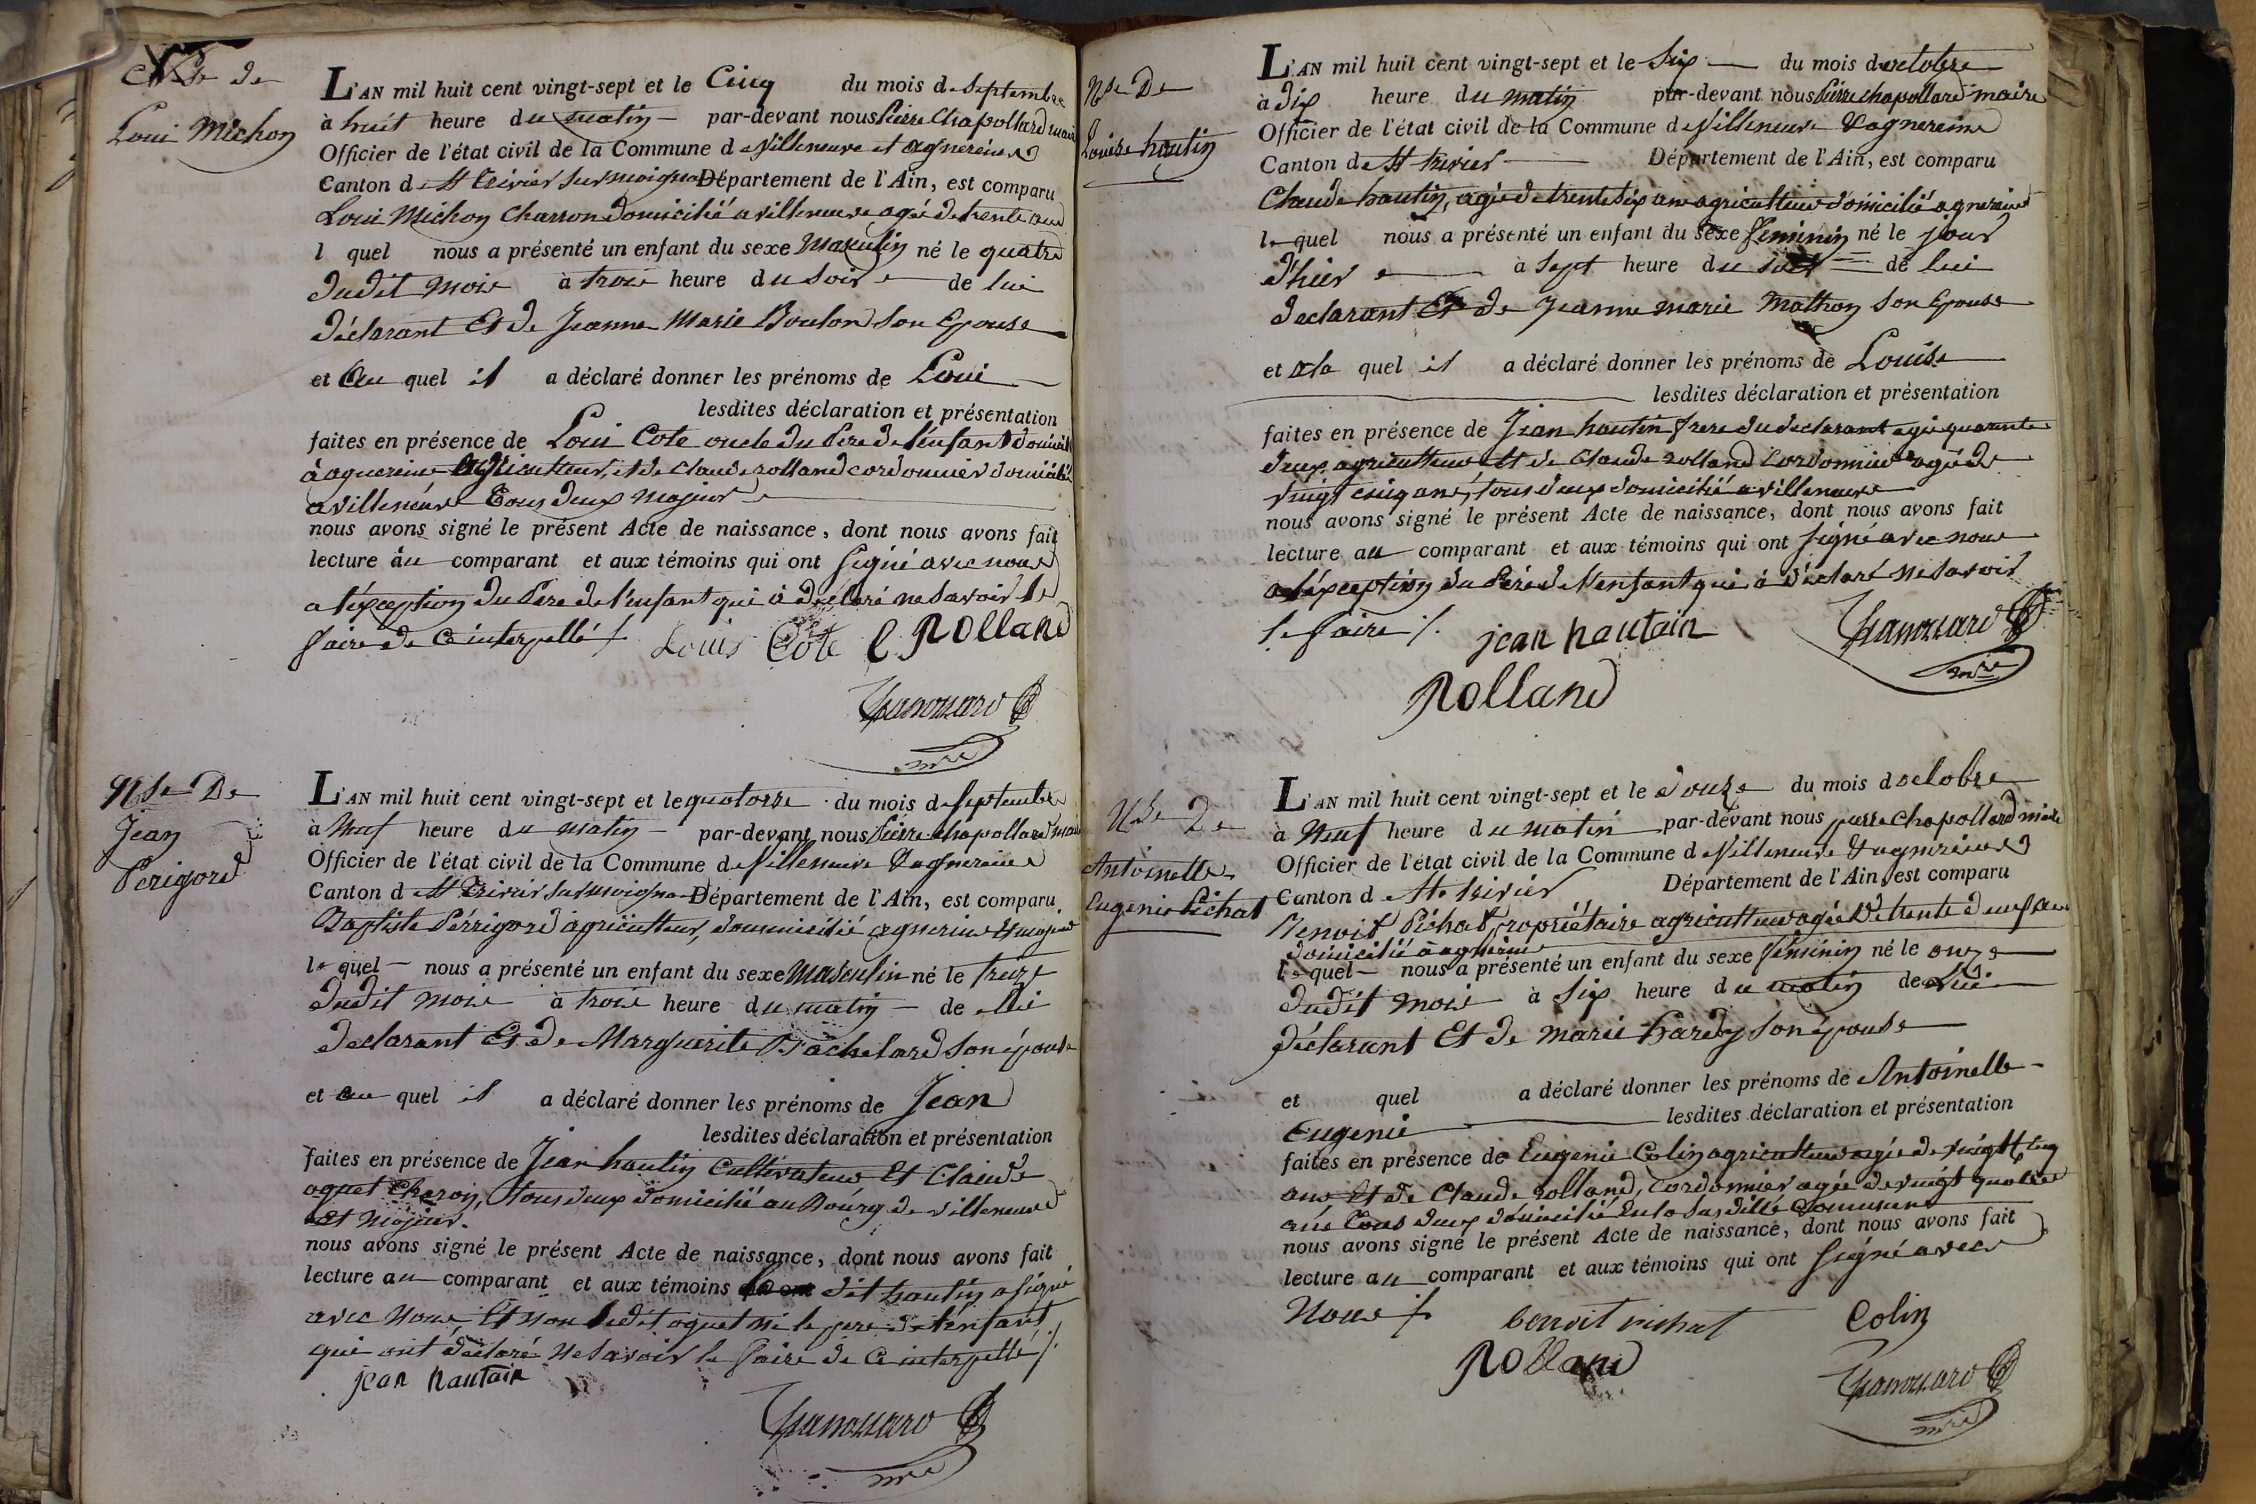 Nce de
Loui Michon
L'AN mil huit cent vingt-sept et le Cinq du mois de Septembre
à huit heure du matin par-devant nous Pierre Chapollard maire
Officier de l'état civil de la Commune de Villeneuve et agnereins
Canton de St trivier sur moignan Département de l'Ain, est comparu
Loui Michon Charron domicilié a villeneuve agé de trente ans
l quel nous a présenté un enfant du sexe Masculin né le quatre
dudit mois à trois heure du soir de lui
déclarant Et de Jeanne Marie Boulon Son Epouse
et Au quel il a déclaré donner les prénoms de Loui
lesdites déclaration et présentation
faites en présence de Loui Cote oncle du Pere de l'enfant domicilié
à agnereins agriculteur, et de claude rolland cordonnier domicilié
a villeneuve Tous deux majeur
nous avons signé le présent Acte de naissance, dont nous avons fait
lecture au comparant et aux témoins qui ont signé avec nous
a l'exception du Pere de l'enfant qui a déclaré ne savoir le
faire de ce interpellé
Louis Cote C Rolland
mre
Nse De
Jean
Perigord
L'AN mil huit cent vingt-sept et le quatorze du mois de Septembre
à Neuf heure du matin par-devant nous Pierre Chapollard maire
Officier de l'état civil de la Commune de Villeneuve & agnereins
Canton de St Trivier sur moignan Département de l'Ain, est comparu
Baptiste Périgord agriculteur, doumicilié agnereins Et majeur
le quel nous a présenté un enfant du sexe Masculin né le treize
dudit mois à trois heure du matin de lui
declarant Et de Marguerite Bachelard Son épouse
et au quel il a déclaré donner les prénoms de Jean
lesdites déclaration et présentation
faites en présence de Jean hautin Cultivateur Et Claude
oquet Charon, tous deux domicilié au Bourg de villeneuve
Et Majeur.
nous avons signé le présent Acte de naissance, dont nous avons fait
lecture au comparant et aux témoins dit hautin a signé
avec Nous, Et non Ledit oquet ni le pere de l'enfant
qui ont déclaré Ne Savoir le faire de ce interpellé
jean hautain
mre
Nse De
Louise hautin
L'AN mil huit cent vingt-sept et le Six du mois doctobre
à dix heure du matin par-devant nous Pierre chapollard maire
Officier de l'état civil de la Commune de Villeneuve & agnereins
Canton de St trivier Département de l'Ain, est comparu
Claude hautin, agé de trente six ans agriculteur domicilié agnereins
le quel nous a présenté un enfant du sexe feminin né le jour
d'hier à sept heure du soir de lui
declarant Et de Jeanne marie Mathon Son Epouse
et ala quel il a déclaré donner les prénoms de Louise
lesdites déclaration et présentation
faites en présence de Jean hautin frere du declarant agé quarante
deux agriculteur Et de Claude rolland Cordonnier agé de
vingt cinq ans, tous deux domicilié a villeneuve
nous avons signé le présent Acte de naissance, dont nous avons fait
lecture au comparant et aux témoins qui ont signé avec nous
a l'exception du Pere de l'enfant qui a déclaré Ne Savoir
le faire
jean hautain
mre
Rolland
Nse De
Antoinette
Eugenie Pichat
L'AN mil huit cent vingt-sept et le douze du mois doctobre
à Neuf heure du matin par-devant nous pierre chapollard maire
Officier de l'état civil de la Commune de Villeneuve & agnereins
Canton de St. trivier Département de l'Ain, est comparu
Benoit Pichat, propriétaire agriculteur agé de trente deux ans
domicilié à agnereins
le quel nous a présenté un enfant du sexe féminin né le onze
dudit mois à Six heure du matin de Lui
déclarant Et de marie hardy son épouse
et quel a déclaré donner les prénoms de Antoinette
Eugenie lesdites déclaration et présentation
faites en présence de Eugenie Colin agriculteur agé de vingt cinq
ans, Et de Claude rolland, Cordonnier agé de vingt quatre
ans Tous deux domicilié En la Susditte Commune
nous avons signé le présent Acte de naissance, dont nous avons fait
lecture au comparant et aux témoins qui ont signé avec
Nous
benoit pichat Colin
Rolland
mre